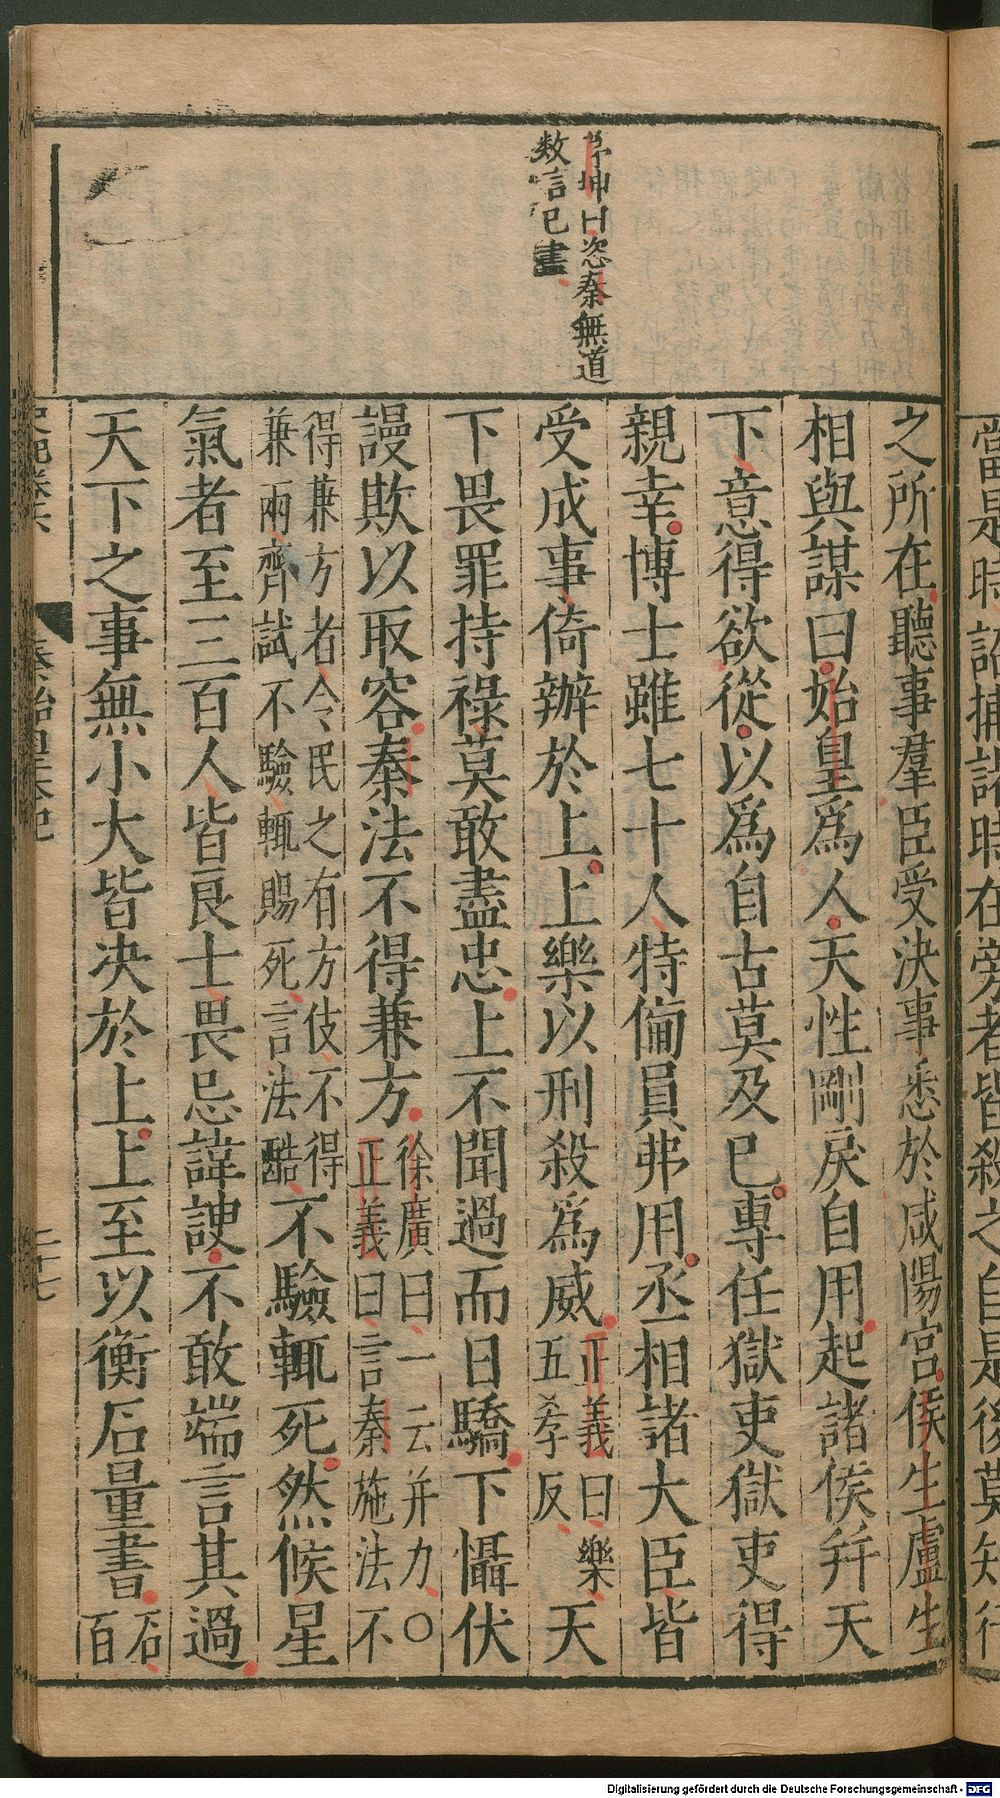 當是時詔捕諸時在旁者皆殺之自是後莫知行
坤曰恣秦無道
數言已盡
之所在聽事羣臣受決事悉於咸陽宮侯生盧生
相與謀曰始皇爲人天性剛戾自用起諸侯幷天
下意得欲從以爲自古莫及巳專任獄吏獄吏得
親幸博士雖七十人特僃員弗用丞相諸大臣皆
受成事倚辦於上上樂以刑殺爲威正義曰樂五孝反天
下畏罪持祿莫敢盡忠上不聞過而日驕下懾伏
謾欺以取容秦法不得兼方徐廣曰一云并力〇正義曰言秦施法不
得兼方者令民之有方伎不得兼兩齊試不驗輒賜死言法酷不驗輒死然候星
氣者至三百人皆良士畏忌諱諛不敢端言其過
天下之事無小大皆決於上上至以衡石量書石百
史記卷六 秦始皇本紀 二十七
Digitalisierung gefördert durch die Deutsche Forschungsgemeinschaft - DFG